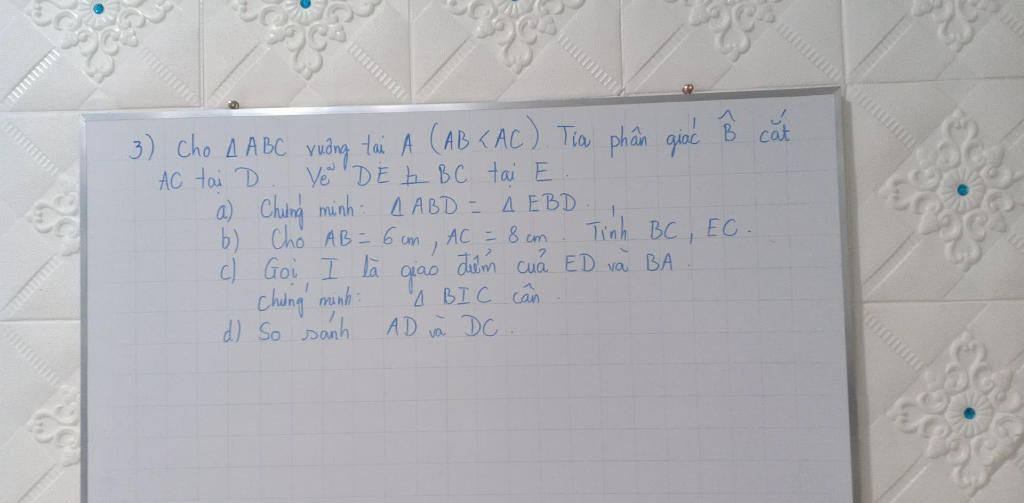 3) Cho Δ ABC vuông tại A (AB < AC). Tia phân giác B̂ cắt
AC tại D. Vẽ DE ⊥ BC tại E.
a) Chứng minh: Δ ABD = Δ EBD.
b) Cho AB = 6 cm, AC = 8 cm. Tính BC, EC.
c) Gọi I là giao điểm của ED và BA.
Chứng minh: Δ BIC cân.
d) So sánh AD và DC.